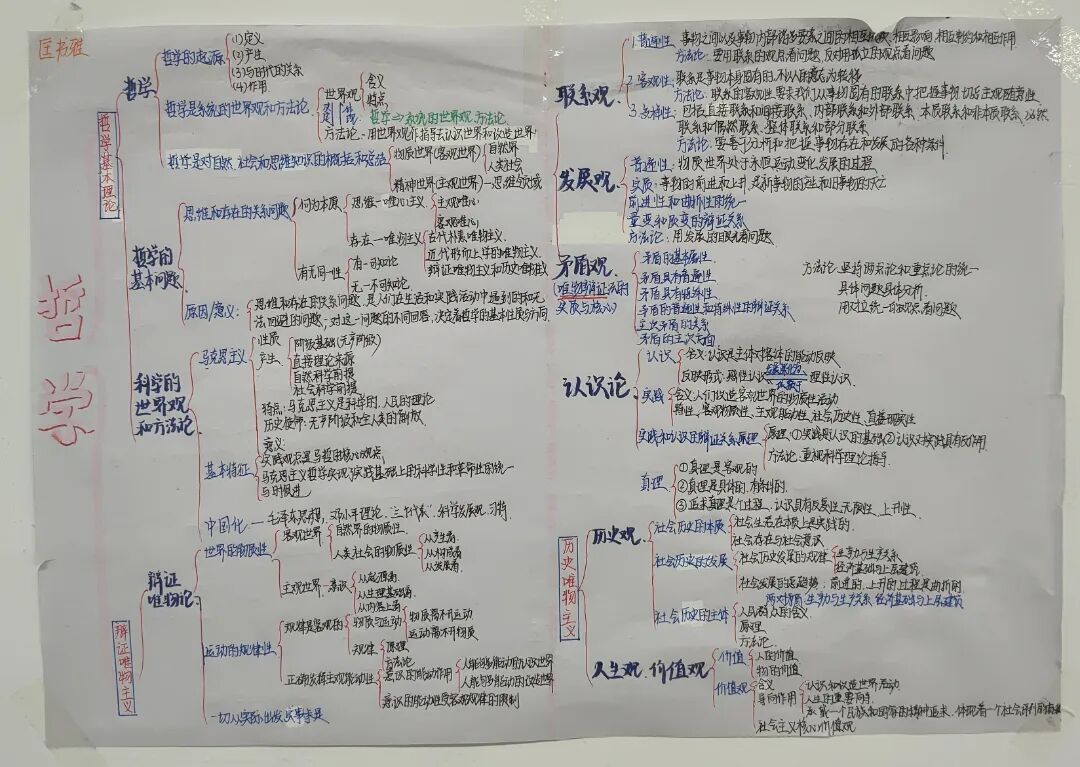 匡书雅
哲学
哲学基本理论
哲学
哲学的起源
(1)定义
(2)产生
(3)与时代的关系
(4)作用
哲学是系统的世界观和方法论
世界观
含义
特点
哲学⇒系统的世界观、方法论
方法论：用世界观作指导去认识世界和改造世界
哲学是对自然、社会和思维知识的概括和总结
物质世界(客观世界)
自然界
人类社会
精神世界(主观世界)—思维与领域
哲学的基本问题
思维和存在的关系问题
何为本原
思维—唯心主义
主观唯心
客观唯心
存在—唯物主义
古代朴素唯物主义
近代形而上学的唯物主义
辩证唯物主义和历史唯物主义
有无同一性
有—可知论
无—不可知论
原因/意义：
思维和存在的关系问题，是人们在生活和实践活动中遇到的和无
法回避的问题；对这一问题的不同回答，决定着哲学的基本性质与方向
科学的世界观和方法论
马克思主义
性质
产生
阶级基础(无产阶级)
直接理论来源
自然科学前提
社会科学前提
特点：马克思主义是科学的、人民的理论
历史使命：无产阶级和全人类的解放
意义
基本特征
实践观点是马哲的核心观点
马克思主义哲学实现了实践基础上的科学性和革命性的统一
与时俱进
中国化—毛泽东思想、邓小平理论、三个代表、科学发展观、习特
辩证唯物主义
辩证唯物论
世界的物质性
客观世界
自然界的物质性
人类社会的物质性
从产生看
从构成看
从发展看
主观世界—意识
从起源看
从生理基础看
从内容上看
运动的规律性
规律是客观的
物质与运动
物质离不开运动
运动离不开物质
规律
原理
方法论
正确发挥主观能动性
意识的能动作用
人能够能动的认识世界
人能够能动的改造世界
意识的能动性受客观规律的限制
一切从实际出发，实事求是
联系观
1.普遍性
事物之间以及事物内部诸要素之间的相互依赖、相互影响、相互制约和相互作用
方法论：要用联系的观点看问题，反对用孤立的观点看问题
2.客观性
联系是事物本身固有的，不以人的意志为转移
方法论：联系的客观性要求我们从事物固有的联系中把握事物，切忌主观随意性
3.多样性
包括直接联系和间接联系、内部联系和外部联系、本质联系和非本质联系、必然
联系和偶然联系、整体联系和部分联系
方法论：要善于分析和把握事物存在和发展的各种条件
发展观
普遍性：物质世界处于永恒运动变化发展的过程
实质：事物的前进和上升，是新事物的产生和旧事物的灭亡
前进性和曲折性的统一
量变和质变的辩证关系
方法论：用发展的眼光看问题
矛盾观
(唯物辩证法的实质与核心)
矛盾的基本属性
矛盾具有普遍性
矛盾具有特殊性
矛盾的普遍性和特殊性的辩证关系
主次矛盾的关系
矛盾的主次方面
方法论：坚持两点论和重点论的统一
具体问题具体分析
用对立统一的观点看问题
认识论
认识
含义：认识是主体对客体的能动反映
反映形式：感性认识
理性认识
实践
含义：人们改造客观世界的物质性活动
特性：客观物质性、主观能动性、社会历史性、直接现实性
实践和认识的辩证关系原理
原理：①实践是认识的基础②认识对实践具有反作用
方法论：重视科学理论指导
真理
①真理是客观的
②真理是具体的、有条件的
③追求真理是个过程，认识具有反复性、无限性、上升性
历史唯物主义
历史观
社会历史的本质
社会生活在本质上是实践的
社会存在与社会意识
社会历史的发展
社会历史发展的规律
生产力与生产关系
经济基础与上层建筑
社会发展的总趋势：前进的、上升的过程是曲折的
两对矛盾：生产力与生产关系 经济基础与上层建筑
社会历史的主体
人民群众的含义
原理
方法论
人生观、价值观
价值
人的价值
物的价值
价值观
含义
导向作用
认识和改造世界活动
人生的重要向导
承载一个民族和国家的精神追求，体现着一个社会评判是非曲直
社会主义核心价值观